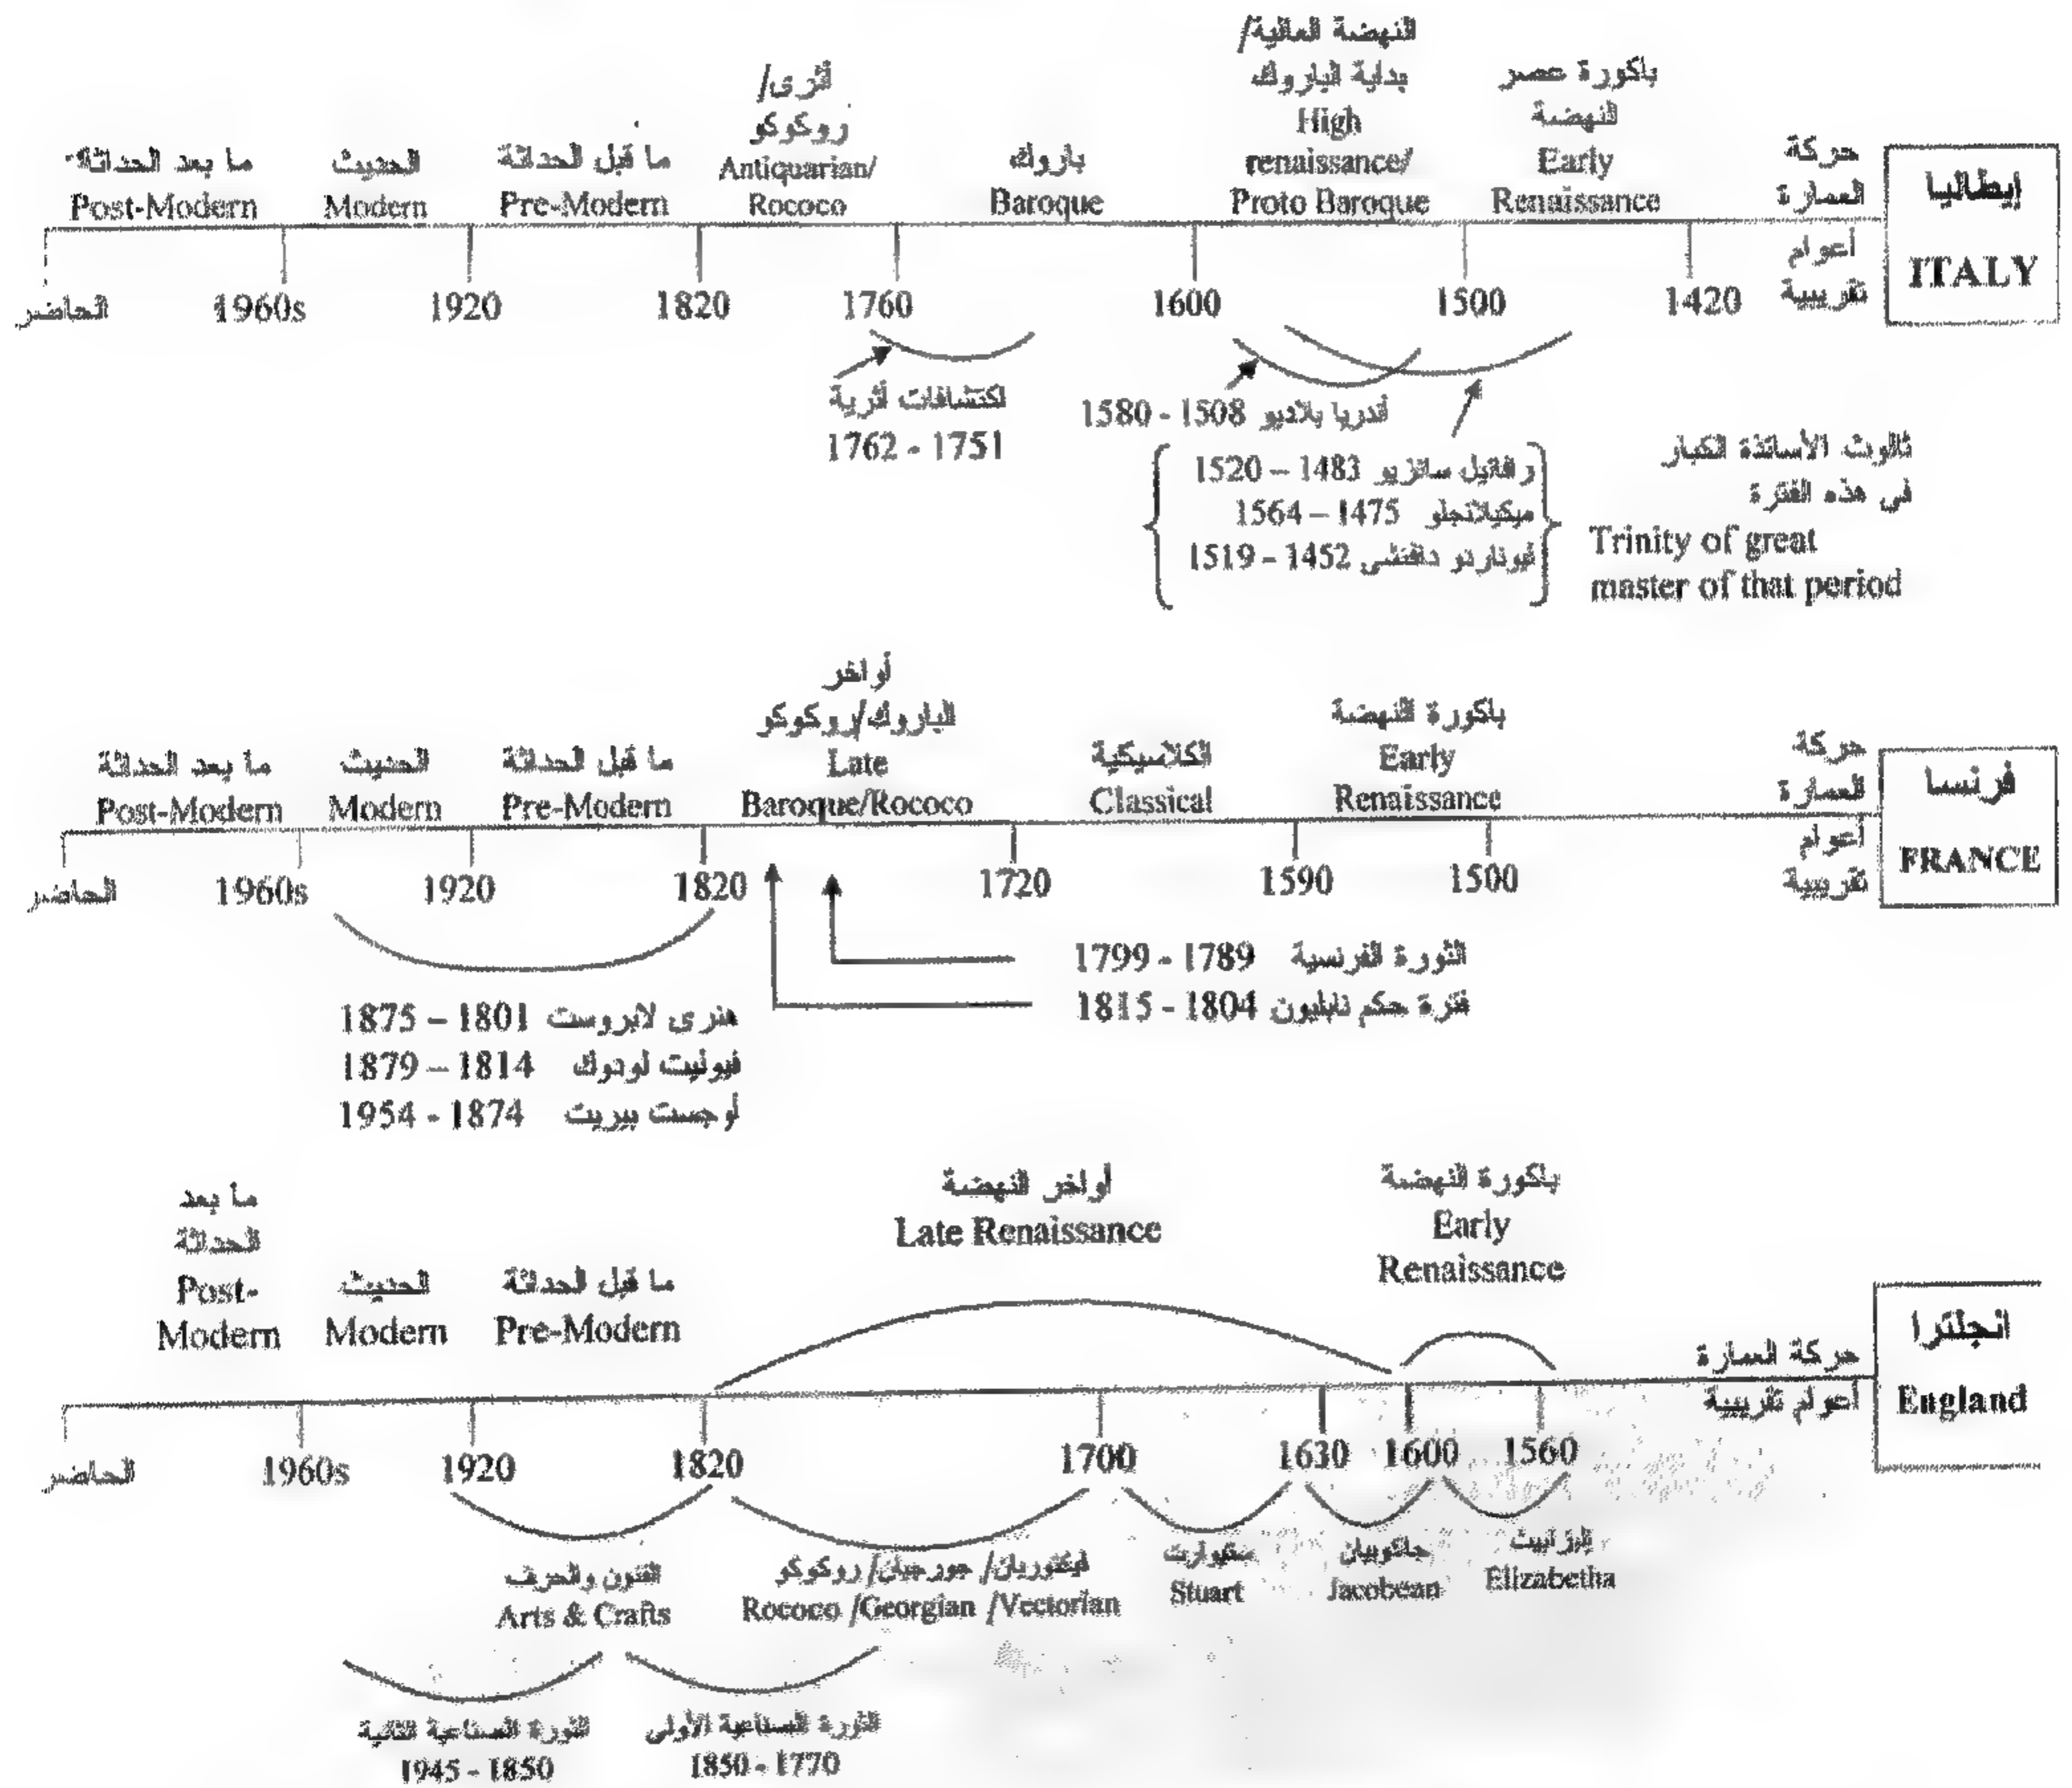 إيطاليا
ITALY
حركة
العمارة
أعوام
تقريبية
باكورة عصر
النهضة
Early
Renaissance
النهضة العالية/
بداية الباروك
High
renaissance/
Proto Baroque
باروك
Baroque
أثرى/
روكوكو
Antiquarian/
Rococo
ما قبل الحداثة
Pre-Modern
الحديث
Modern
ما بعد الحداثة
Post-Modern
1420
1500
1600
1760
1820
1920
1960s
الحاضر
اكتشافات أثرية
1762 - 1751
أندريا بلاديو 1508 - 1580
رفائيل سانزيو 1483 – 1520
ميكيلانجلو 1475 – 1564
ليوناردو دافنشى 1452 - 1519
ثالوث الأساتذة الكبار
فى هذه الفترة
Trinity of great
master of that period
فرنسا
FRANCE
حركة
العمارة
أعوام
تقريبية
باكورة النهضة
Early
Renaissance
الكلاسيكية
Classical
أواخر
الباروك/روكوكو
Late
Baroque/Rococo
ما قبل الحداثة
Pre-Modern
الحديث
Modern
ما بعد الحداثة
Post-Modern
1500
1590
1720
1820
1920
1960s
الحاضر
الثورة الفرنسية 1789 - 1799
فترة حكم نابليون 1804 - 1815
هنرى لابروست 1801 – 1875
فيوليت لودوك 1814 – 1879
أوجست بيريت 1874 - 1954
انجلترا
England
حركة العمارة
أعوام تقريبية
باكورة النهضة
Early
Renaissance
أواخر النهضة
Late Renaissance
ما قبل الحداثة
Pre-Modern
الحديث
Modern
ما بعد
الحداثة
Post-
Modern
1560
1600
1630
1700
1820
1920
1960s
الحاضر
إليزابيث
Elizabetha
جاكوبيان
Jacobean
ستيوارت
Stuart
فيكتوريان/ جورجيان/ روكوكو
Rococo /Georgian /Vectorian
الفنون والحرف
Arts & Crafts
الثورة الصناعية الأولى
1850 - 1770
الثورة الصناعية الثانية
1945 - 1850